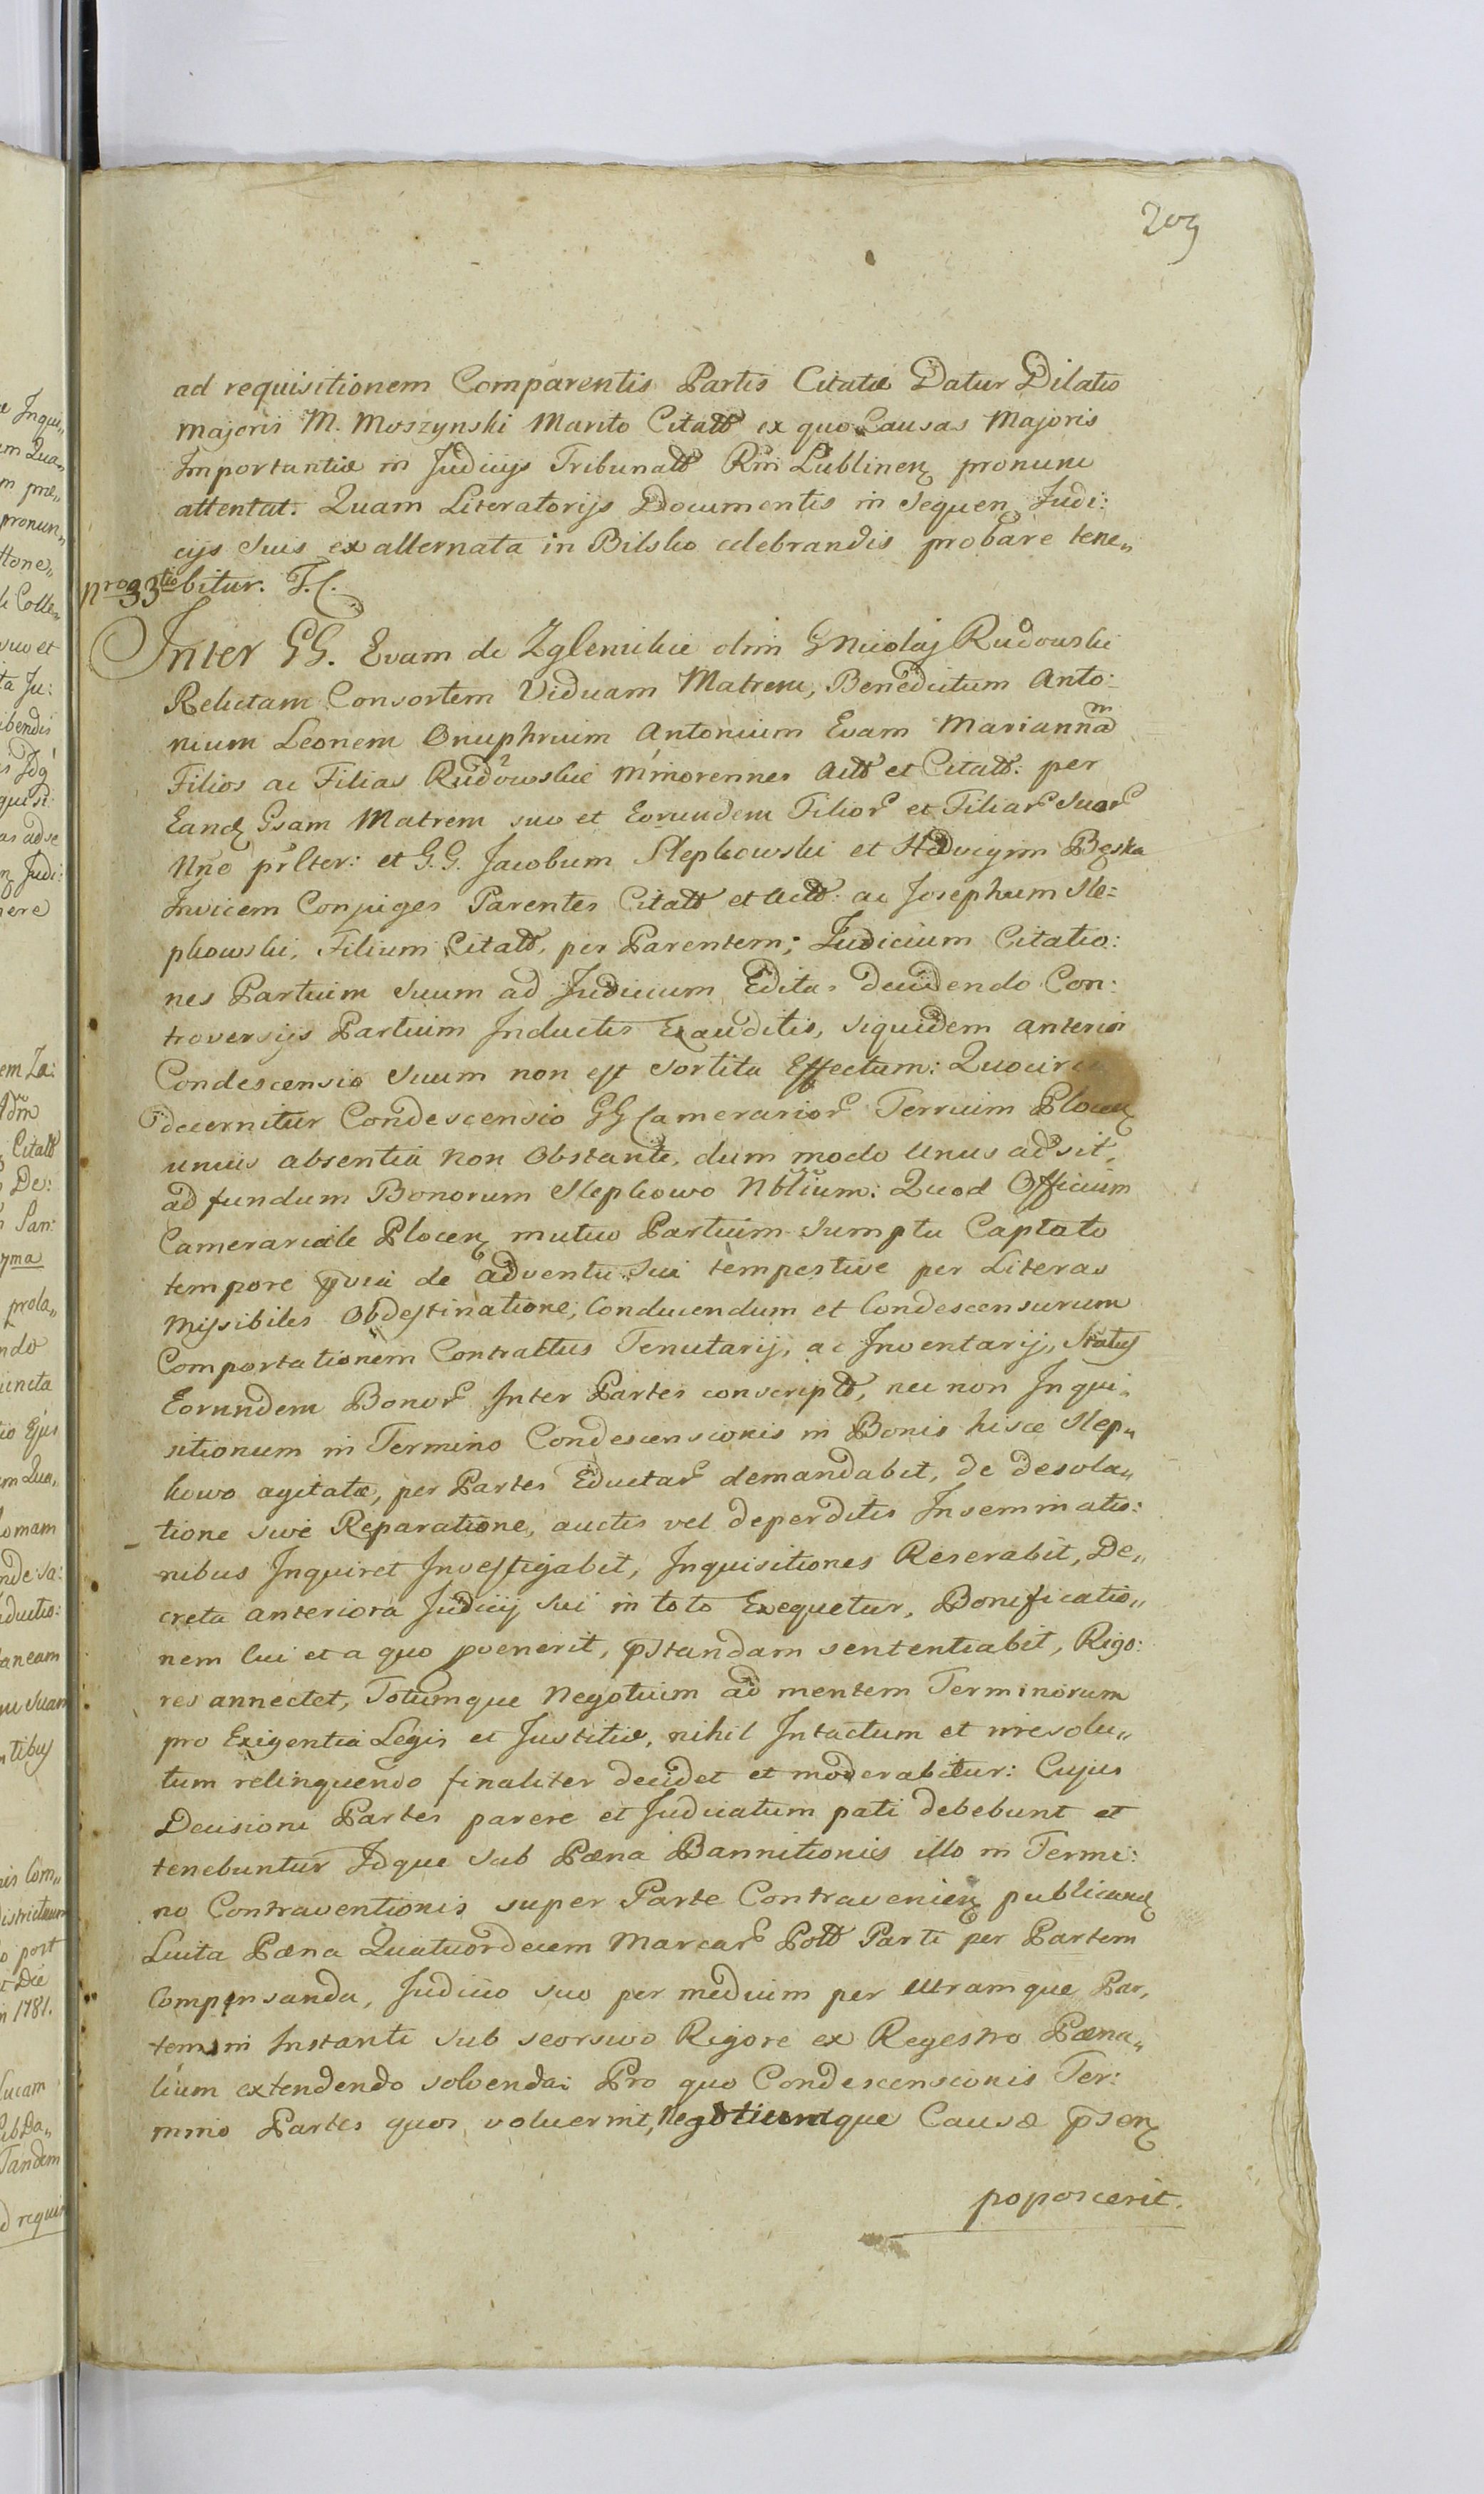 209
ad requisitionem Comparentis Partis Citatæ Datur Dilatio
Majoris M. Moszynski Marito Citatt ex quo Causas Majoris
Importantiæ in Judicijs Tribunalt Rni Lublinen pronunc
attentat. Quam Literatorijs Documentis in Sequen Judi:
cijs Suis ex alternata in Bilsko celebrandis probare tene„
nro 33tio bitur. T. C.
Inter GG. Evam de Zglenickie olim G Nicolaj Rudowski
Relictam Consortem Viduam Matrem, Benedictum Anto:
nium Leonem Onuphrium Antonium Evam Mariannam
Filios ac Filias Rudowskie minorennes Actt et Citatt: per
Eand Gsam Matrem suo et Eorundem Filior et Filiar Suor
Nne prlter: et G.G. Jacobum Slepkowski et Hedvigim Bęska
Invicem Conjuges Parentes Citatt et Actt: ac Josephum Sle=
pkowski, Filium Citatt, per Parentem; Judicium Citatio:
nes Partium Suum ad Judicium Editas decidendo Con:
troversijs Partium Inductis Exauditis, siquidem anterior
Condescensio Suum non est sortita Effectum: Quocirca
decernitur Condescensio GG Camerarior Terrium Plocen
unius absentia non Obstante, dum modo Unus adsit,
ad fundum Bonorum Slepkowo Nbtium: Quod Officium
Camerariale Plocen mutuo Partium Sumptu Captato
tempore prvia de adventu Sui tempestive per Literas
Missibiles Obdestinatione, Conducendum et Condescensurum
Comportationem Contractus Tenutarij, ac Inventarij, Status
Eorundem Bonor Inter Partes conscriptt, nec non Inqui„
sitionum in Termino Condescensionis in Bonis hisce Slep„
kowo agitatæ, per Partes Eductar demandabit, de desola„
tione sive Reparatione, auctis vel deperditis Inseminatio:
nibus Inquiret Investigabit, Inquisitiones Reserabit, De„
creta anteriora Judicij Sui in toto Exequetur, Bonificatio„
nem cui et a quo venerit, pstandam sententiabit, Rigo:
res annectet, Totumque Negotium ad mentem Terminorum
pro Exigentia Legis et Justitiæ, nihil Intactum et irresolu„
tum relinquendo finaliter decidet et moderabitur: Cujus
Decisioni Partes parere et Judicatum pati debebunt et
tenebuntur Idque sub Pæna Bannitionis illo in Termi:
no Contraventionis super Parte Contravenien publicand
Luita Pæna Quatuordecem Marcar Poll Parti per Partem
Compensanda, Judicio suo per medium per utramque Par,
tem in Instanti sub seorsivo Rigore ex Regestro Pæna„
lium extendendo solvenda: Pro quo Condescensionis Ter:
mino Partes quos voluerint, Negotiumque Causæ psen
poposcerit.